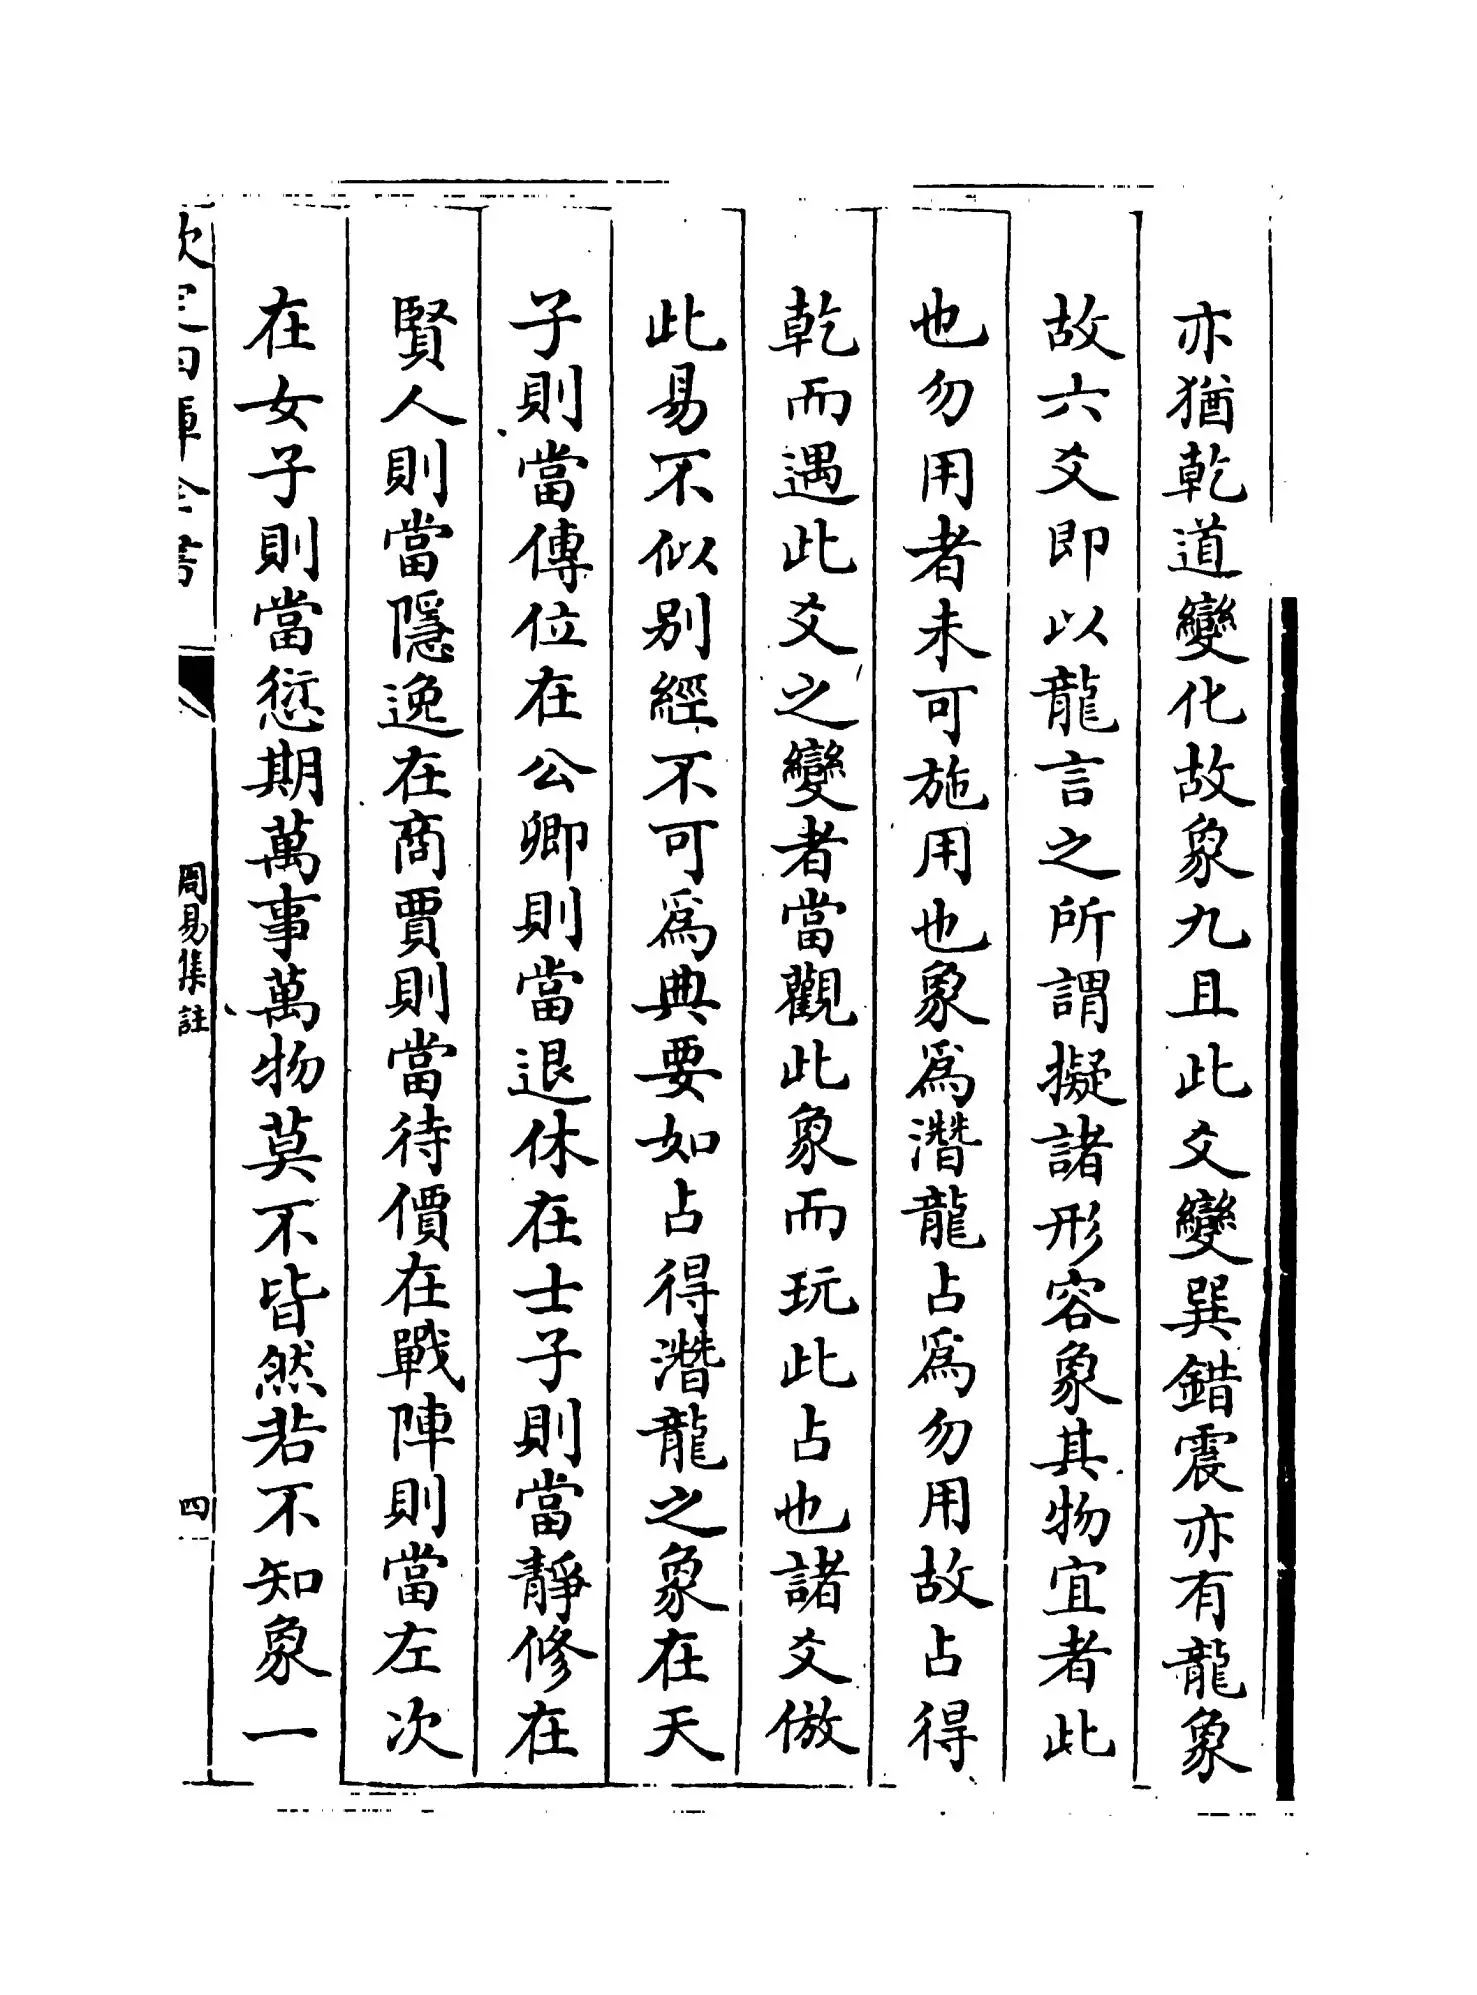 亦猶乾道變化故象九且此爻變巽錯震亦有龍象
故六爻即以龍言之所謂擬諸形容象其物宜者此
也勿用者未可施用也象爲潛龍占爲勿用故占得
乾而遇此爻之變者當觀此象而玩此占也諸爻倣
此易不似别經不可爲典要如占得潛龍之象在天
子則當傳位在公卿則當退休在士子則當靜修在
賢人則當隱逸在商賈則當待價在戰陣則當左次
在女子則當愆期萬事萬物莫不皆然若不知象一
欽定四庫全書
周易集註
四